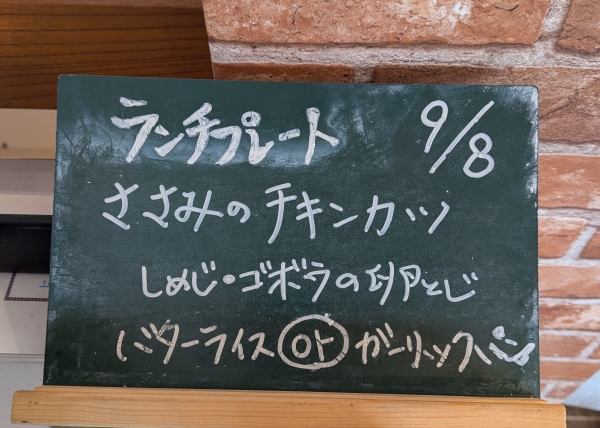 ランチプレート 9/8
ささみのチキンカツ
しめじ・ゴボウの卵とじ
バターライス or ガーリックパン